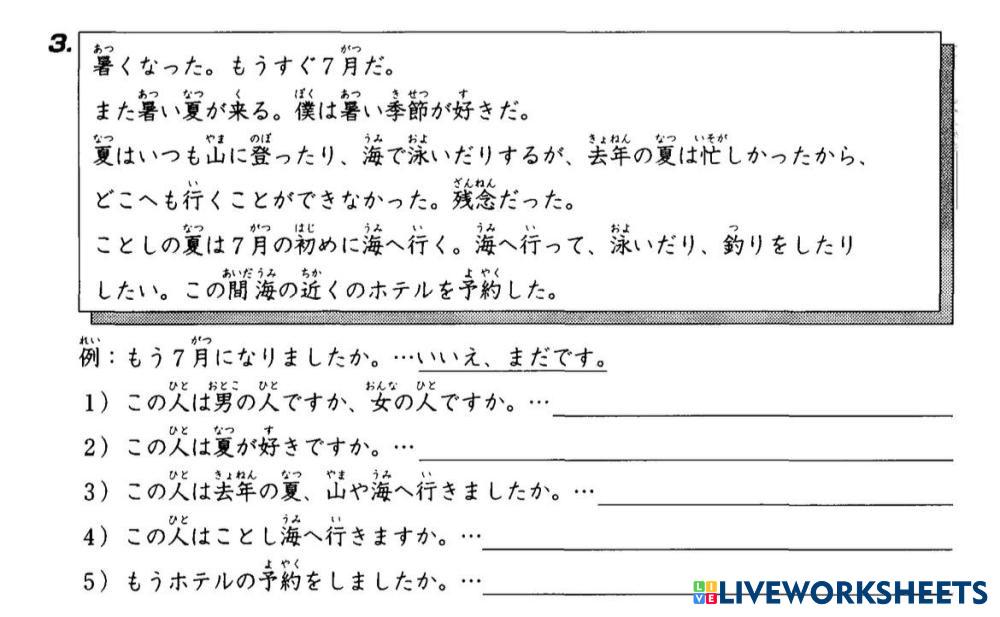 3.
暑くなった。もうすぐ7月だ。
また暑い夏が来る。僕は暑い季節が好きだ。
夏はいつも山に登ったり、海で泳いだりするが、去年の夏は忙しかったから、
どこへも行くことができなかった。残念だった。
ことしの夏は7月の初めに海へ行く。海へ行って、泳いだり、釣りをしたり
したい。この間海の近くのホテルを予約した。
例：もう7月になりましたか。…いいえ、まだです。
1）この人は男の人ですか、女の人ですか。…
2）この人は夏が好きですか。…
3）この人は去年の夏、山や海へ行きましたか。…
4）この人はことし海へ行きますか。…
5）もうホテルの予約をしましたか。…
LIVEWORKSHEETS